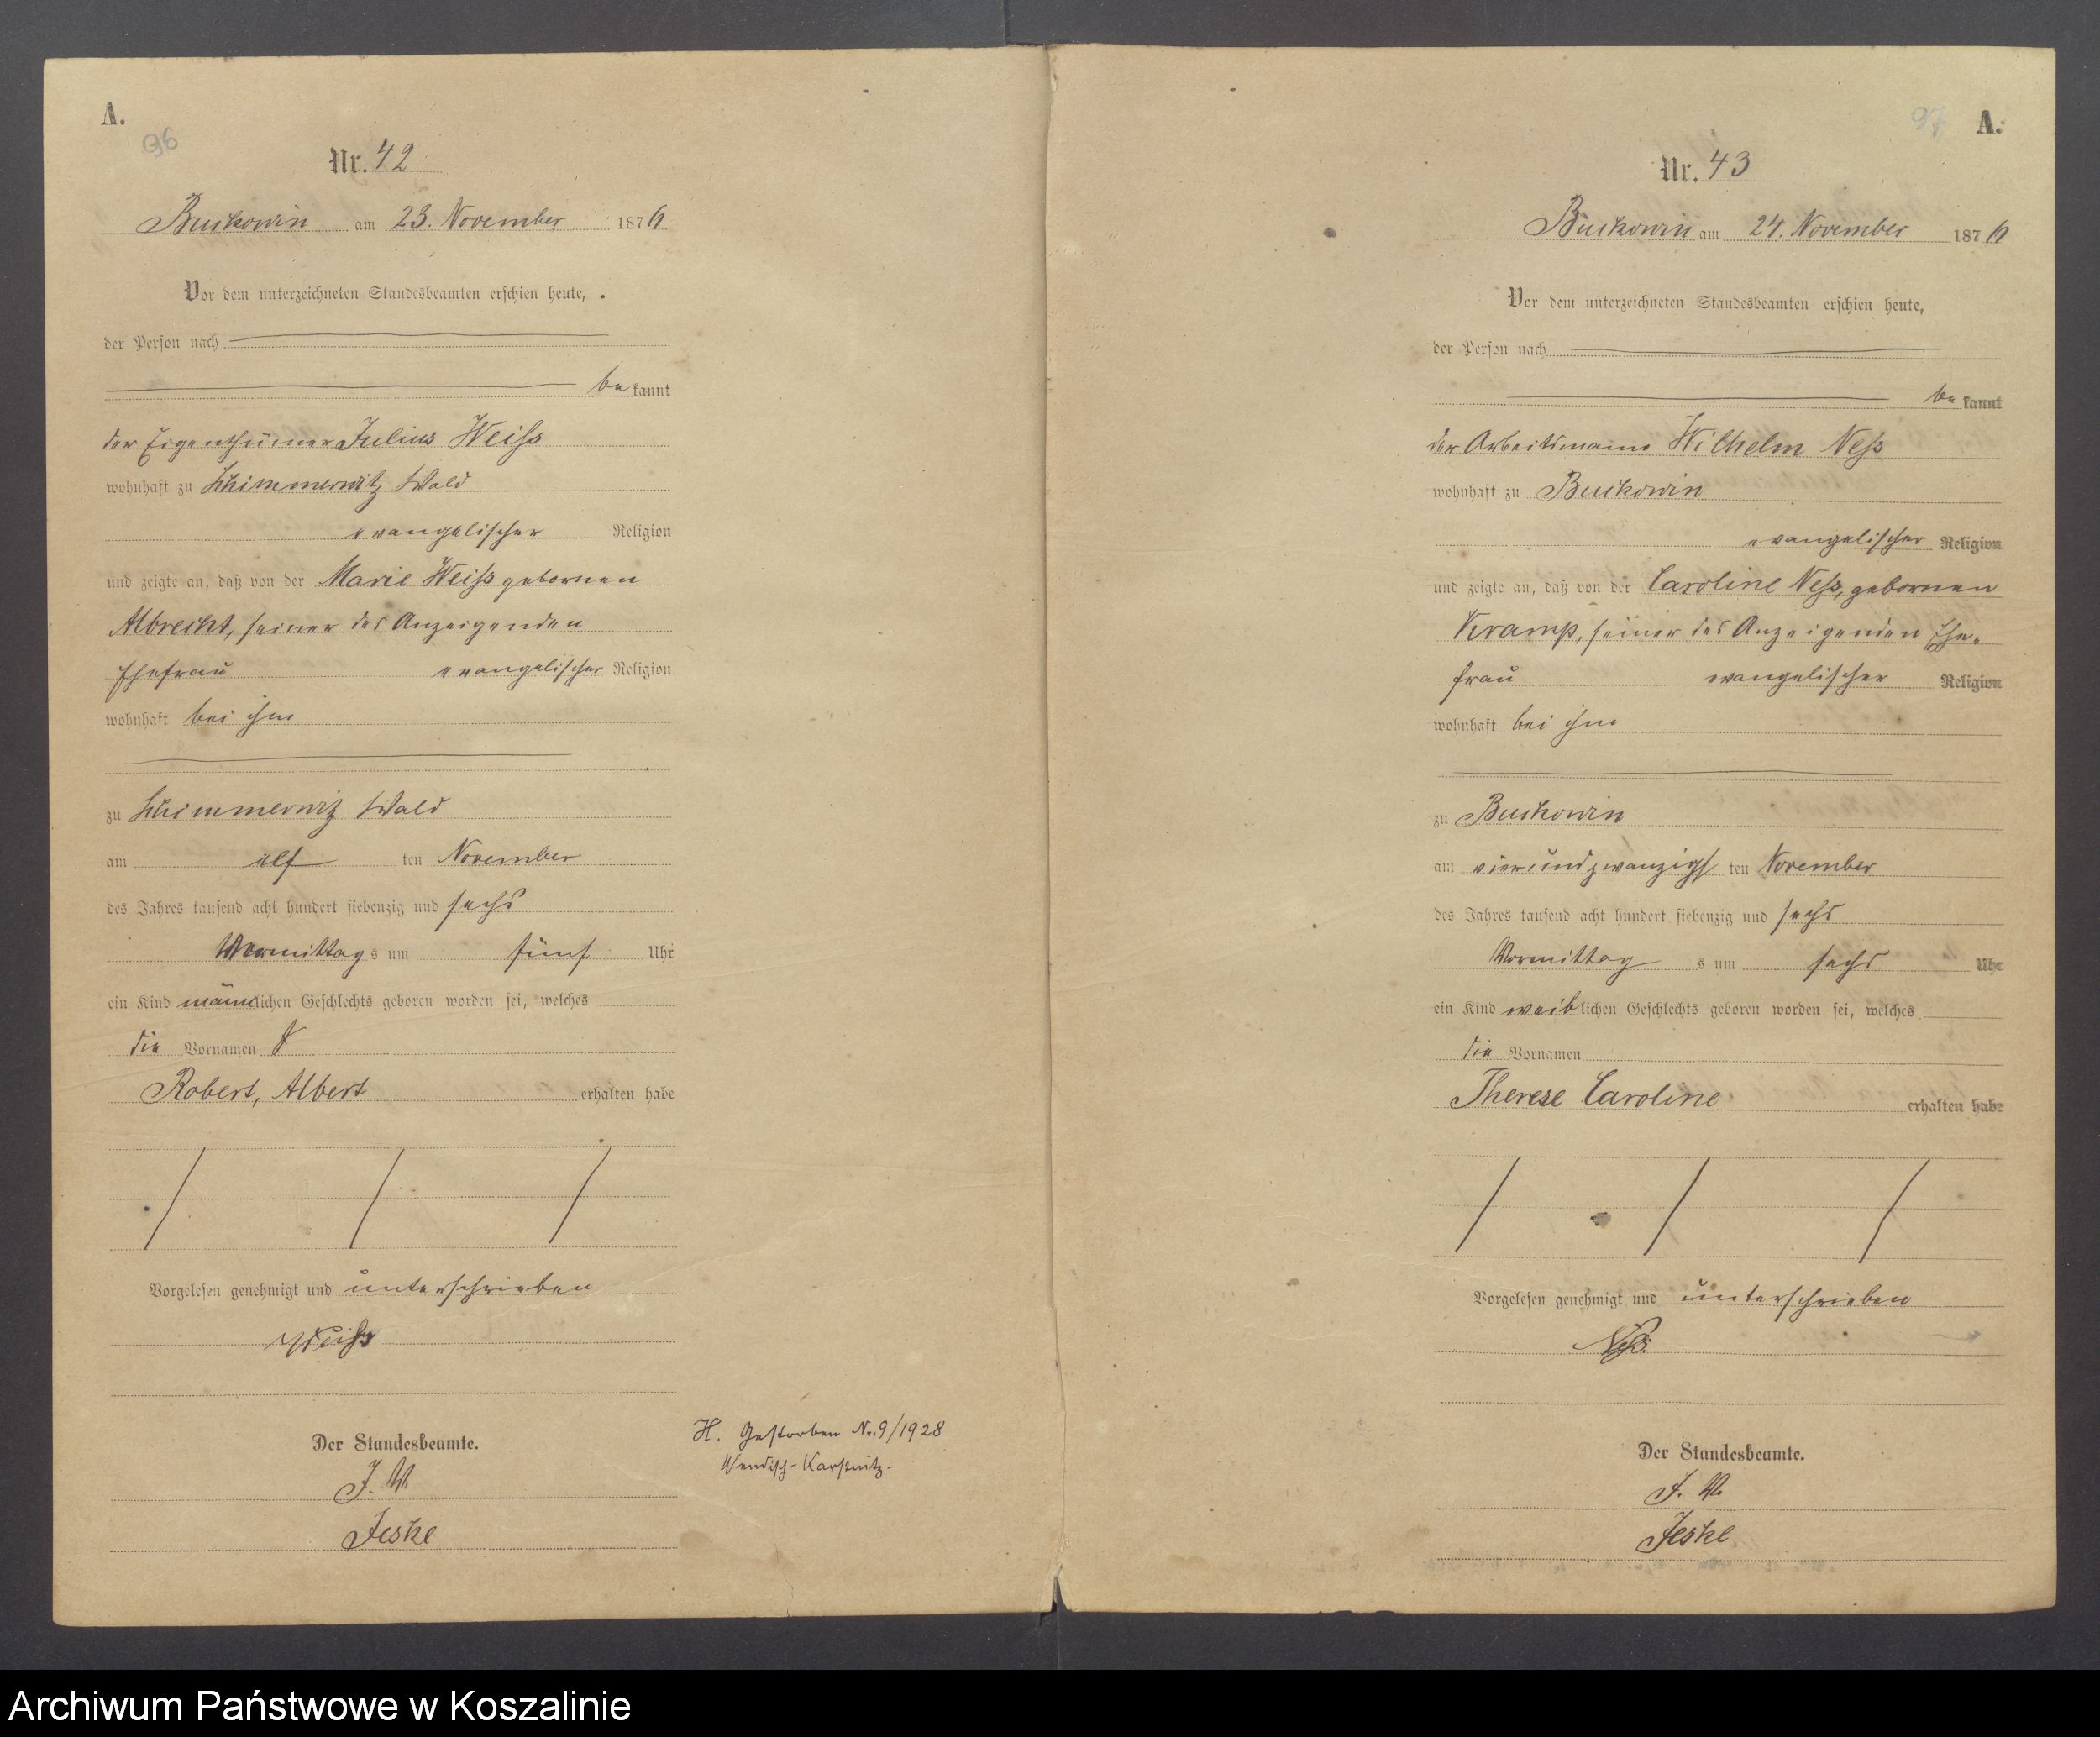 A.
96
Nr. 42
Buckowin am 23. November 1876
Vor dem unterzeichneten Standesbeamten erschien heute,
der Person nach
bekannt
der Eigenthümer Julius Weiß
wohnhaft zu Schimmerwitz Wald
evangelischer Religion
und zeigte an, daß von der Marie Weiß gebornen
Albrecht, seiner des Anzeigenden
Ehefrau evangelischer Religion
wohnhaft bei ihm
zu Schimmerwitz Wald
am elf ten November
des Jahres tausend acht hundert siebenzig und sechs
Vormittags um fünf Uhr
ein Kind männlichen Geschlechts geboren worden sei, welches
die Vornamen
Robert, Albert erhalten habe
Vorgelesen genehmigt und unterschrieben
Weiß
Der Standesbeamte.
J. V.
Jeske
H. Gestorben Nr. 9/1928
Wendisch-Karstnitz.
97
A.
Nr. 43
Buckowin am 24. November 1876
Vor dem unterzeichneten Standesbeamten erschien heute,
der Person nach
bekannt
der Arbeitsmann Wilhelm Neß
wohnhaft zu Buckowin
evangelischer Religion
und zeigte an, daß von der Caroline Neß, gebornen
Kramp, seiner des Anzeigenden Ehe-
frau evangelischer Religion
wohnhaft bei ihm
zu Buckowin
am vierundzwanzigsten November
des Jahres tausend acht hundert siebenzig und sechs
Vormittags um sechs Uhr
ein Kind weiblichen Geschlechts geboren worden sei, welches
die Vornamen
Therese Caroline erhalten habe
Vorgelesen genehmigt und unterschrieben
Neß.
Der Standesbeamte.
J. V.
Jeske
Archiwum Państwowe w Koszalinie